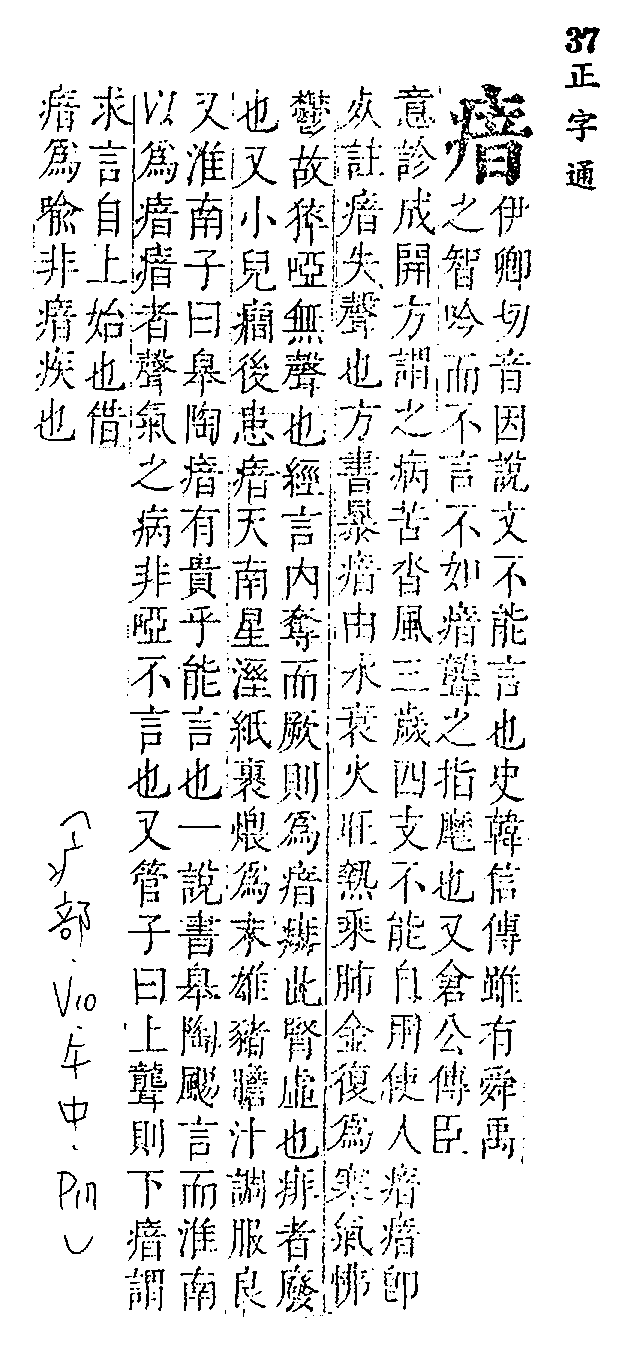 37正字通
瘖
伊卿切音因說文不能言也史韓信傳雖有舜禹
之智吟而不言不如瘖聾之指麾也又倉公傳臣
意診成開方謂之病苦沓風三歲四支不能自用使人瘖瘖卽
死註瘖失聲也方書暴瘖由水衰火旺熱乘肺金復爲寒氣怫
鬱故猝啞無聲也經言內奪而厥則爲瘖痱此腎虛也痱者廢
也又小兒癇後患瘖天南星溼紙裹煨爲末雄豬膽汁調服良
又淮南子曰皋陶瘖有貴乎能言也一說書皋陶颺言而淮南
以爲瘖瘖者聲氣之病非啞不言也又管子曰上聾則下瘖謂
求言自上始也借
瘖爲喻非瘖疾也
(疒部.V10.午中.P11)